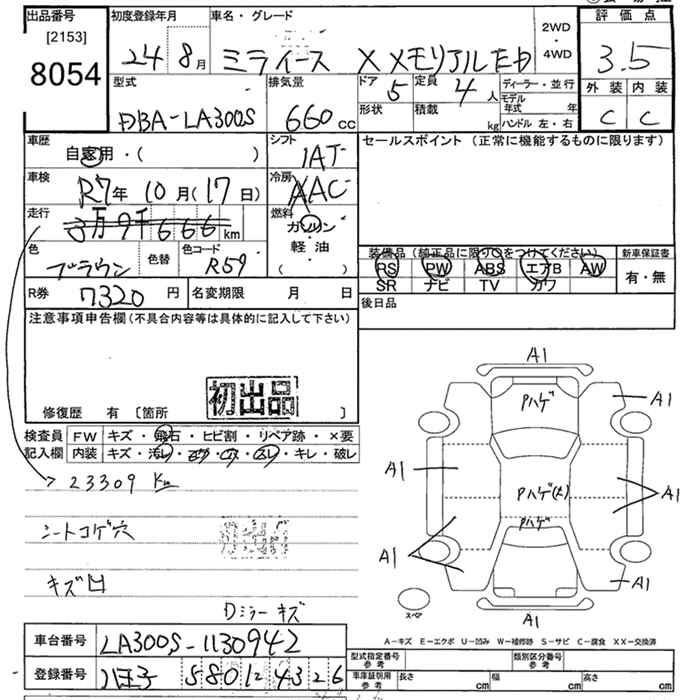 出品番号 初度登録年月 車名・グレード 2WD・4WD 評価点
[2153]
8054
24年 8月 ミライース X メモリアルED 3.5
型式 排気量 ドア 5 定員 4人 ディーラー・並行 外装 内装
DBA-LA300S 660cc 形状 積載 kg モデル年式 年 ハンドル 左・右 C C
車歴 シフト セールスポイント (正常に機能するものに限ります)
自家用・( ) IAT
車検 R7年 10月(17日) 冷房 AAC
走行 3万9千666km 燃料 ガソリン
軽・油
( )
色 ブラウン 色替 色コード R59
装備品(純正品に限り○をつけてください) 新車保証書
RS PW ABS エアB AW 有・無
SR ナビ TV カワ
R券 7320円 名変期限 月 日 後日品
注意事項申告欄(不具合内容等は具体的に記入して下さい)
初出品
修復歴 有 〔箇所 〕
検査員記入欄 FW キズ・飛石・ヒビ割・リペア跡・×要
内装 キズ・汚レ・コゲ・穴・スレ・キレ・破レ
23309 Km
シートコゲ穴
初出品
キズ凹
Dミラーキズ
A1
Pハゲ
A1
A1
Pハゲ(大)
A1
Pハゲ
A1
A1
A1
スペア
A-キズ E-エクボ U-凹み W-補修跡 S-サビ C-腐食 XX-交換済
車台番号 LA300S-1130942
登録番号 八王子 580 に 4326
型式指定番号 参考 類別区分番号 参考
車庫証明用 参考 長さ cm 幅 cm 高さ cm